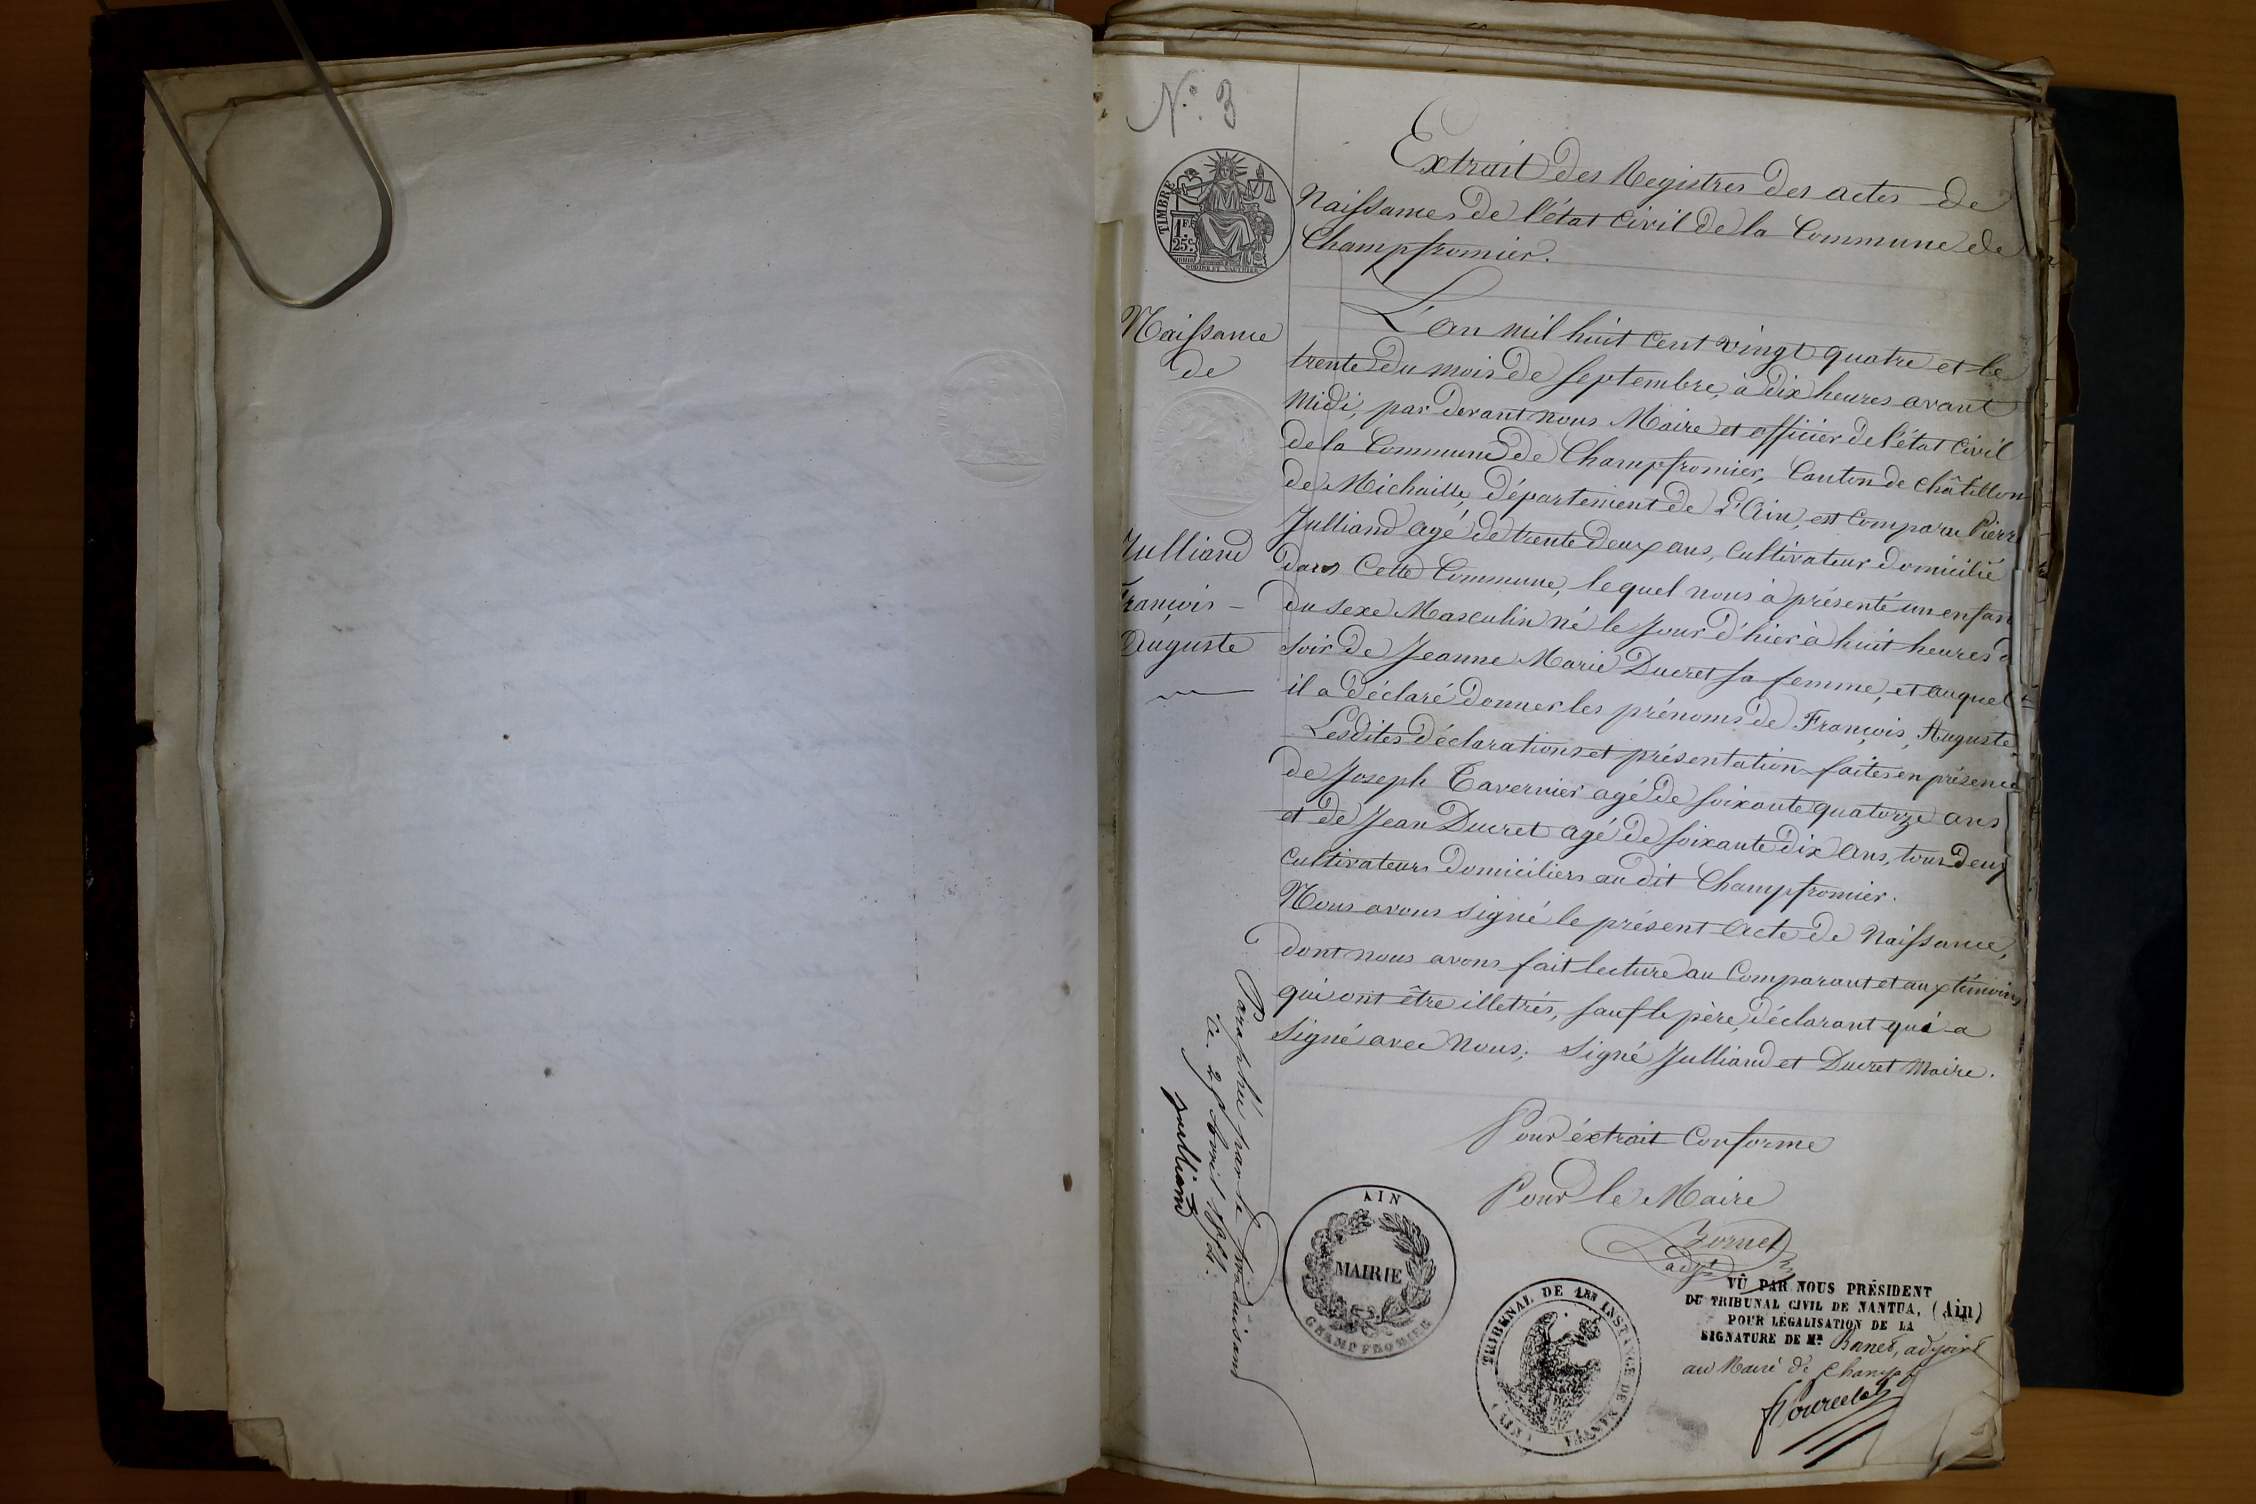 N.° 3
TIMBRE
1 FR
25 C.
Extrait des Registres des actes de
Naissances de l'état civil de la Commune de
Champfromier.
Naissance
de
Julliand
François -
Auguste
L'an mil huit cent vingt quatre et le
trente du mois de septembre, à dix heures avant
Midi, par devant nous Maire et officier de l'état civil
de la Commune de Champfromier, Canton de Châtillon
de Michaille, département de L'Ain, est comparu Pierre
Julliand agé de trente deux ans, cultivateur domicilié
dans cette Commune, lequel nous à présenté un enfan
du sexe Masculin né le jour d'hier à huit heures d
soir de Jeanne Marie Ducret sa femme, et auquel
il a déclaré donner les prénoms de François, Auguste
Lesdites déclarations et présentation faites en présence
de Joseph Tavernier agé de soixante quatorze ans
et de Jean Ducret agé de soixante dix ans, tous deux
cultivateurs domiciliers au dit Champfromier.
Nous avons signé le présent acte de Naissance,
dont nous avons fait lecture au Comparant et aux témoins
qui ont être illetrés, sauf le père, déclarant qui a
signé avec Nous; signé Julliand et Ducret Maire.
Paraphé par le produisant
le 27 Avril 1874.
Julliand
Pour éxtrait Conforme
Pour le Maire
adjt
AIN
MAIRIE
CHAMPFROMIER
TRIBUNAL DE 1RE INSTANCE DE NANTUA
(AIN)
VÛ PAR NOUS PRÉSIDENT
DU TRIBUNAL CIVIL DE NANTUA, (Ain)
POUR LÉGALISATION DE LA
SIGNATURE DE Mr. adjoint
au Maire de Champf